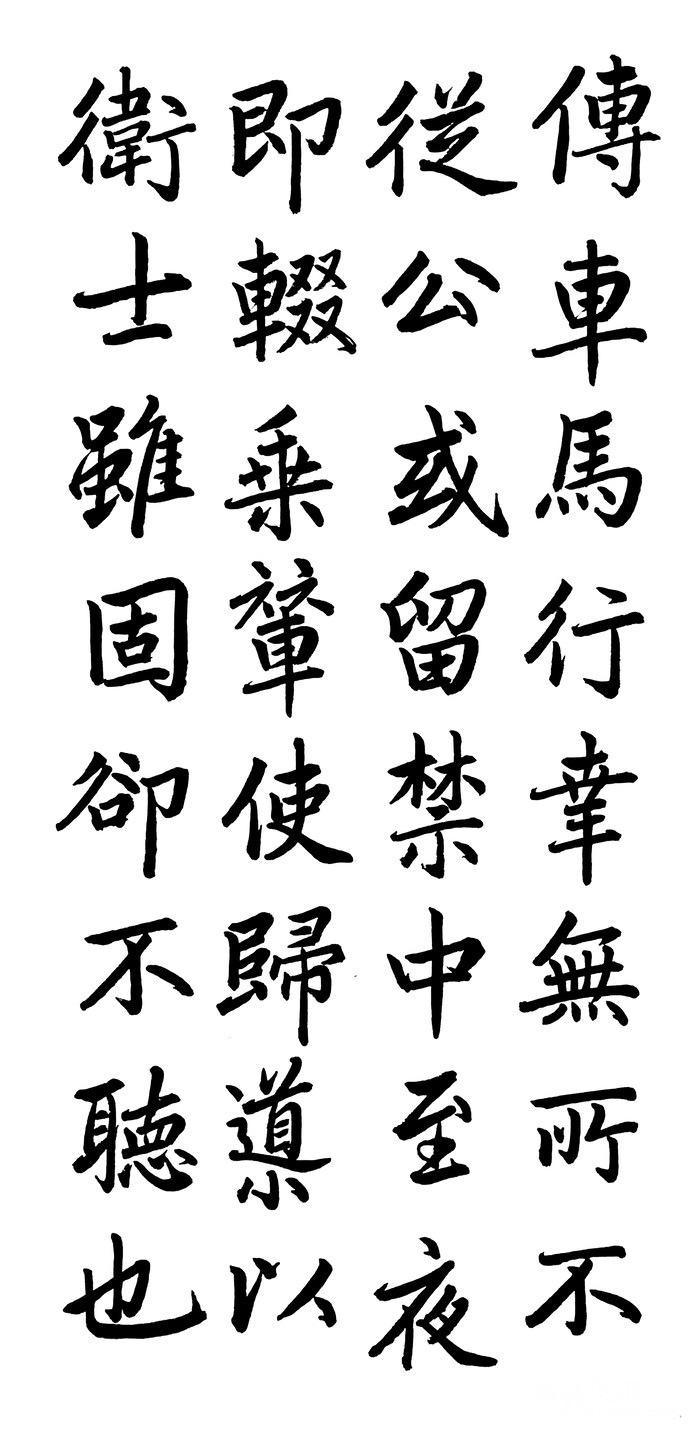 傳車馬行幸無所不
従公或留禁中至夜
即輟乗輦使歸導以
衛士雖固卻不聽也